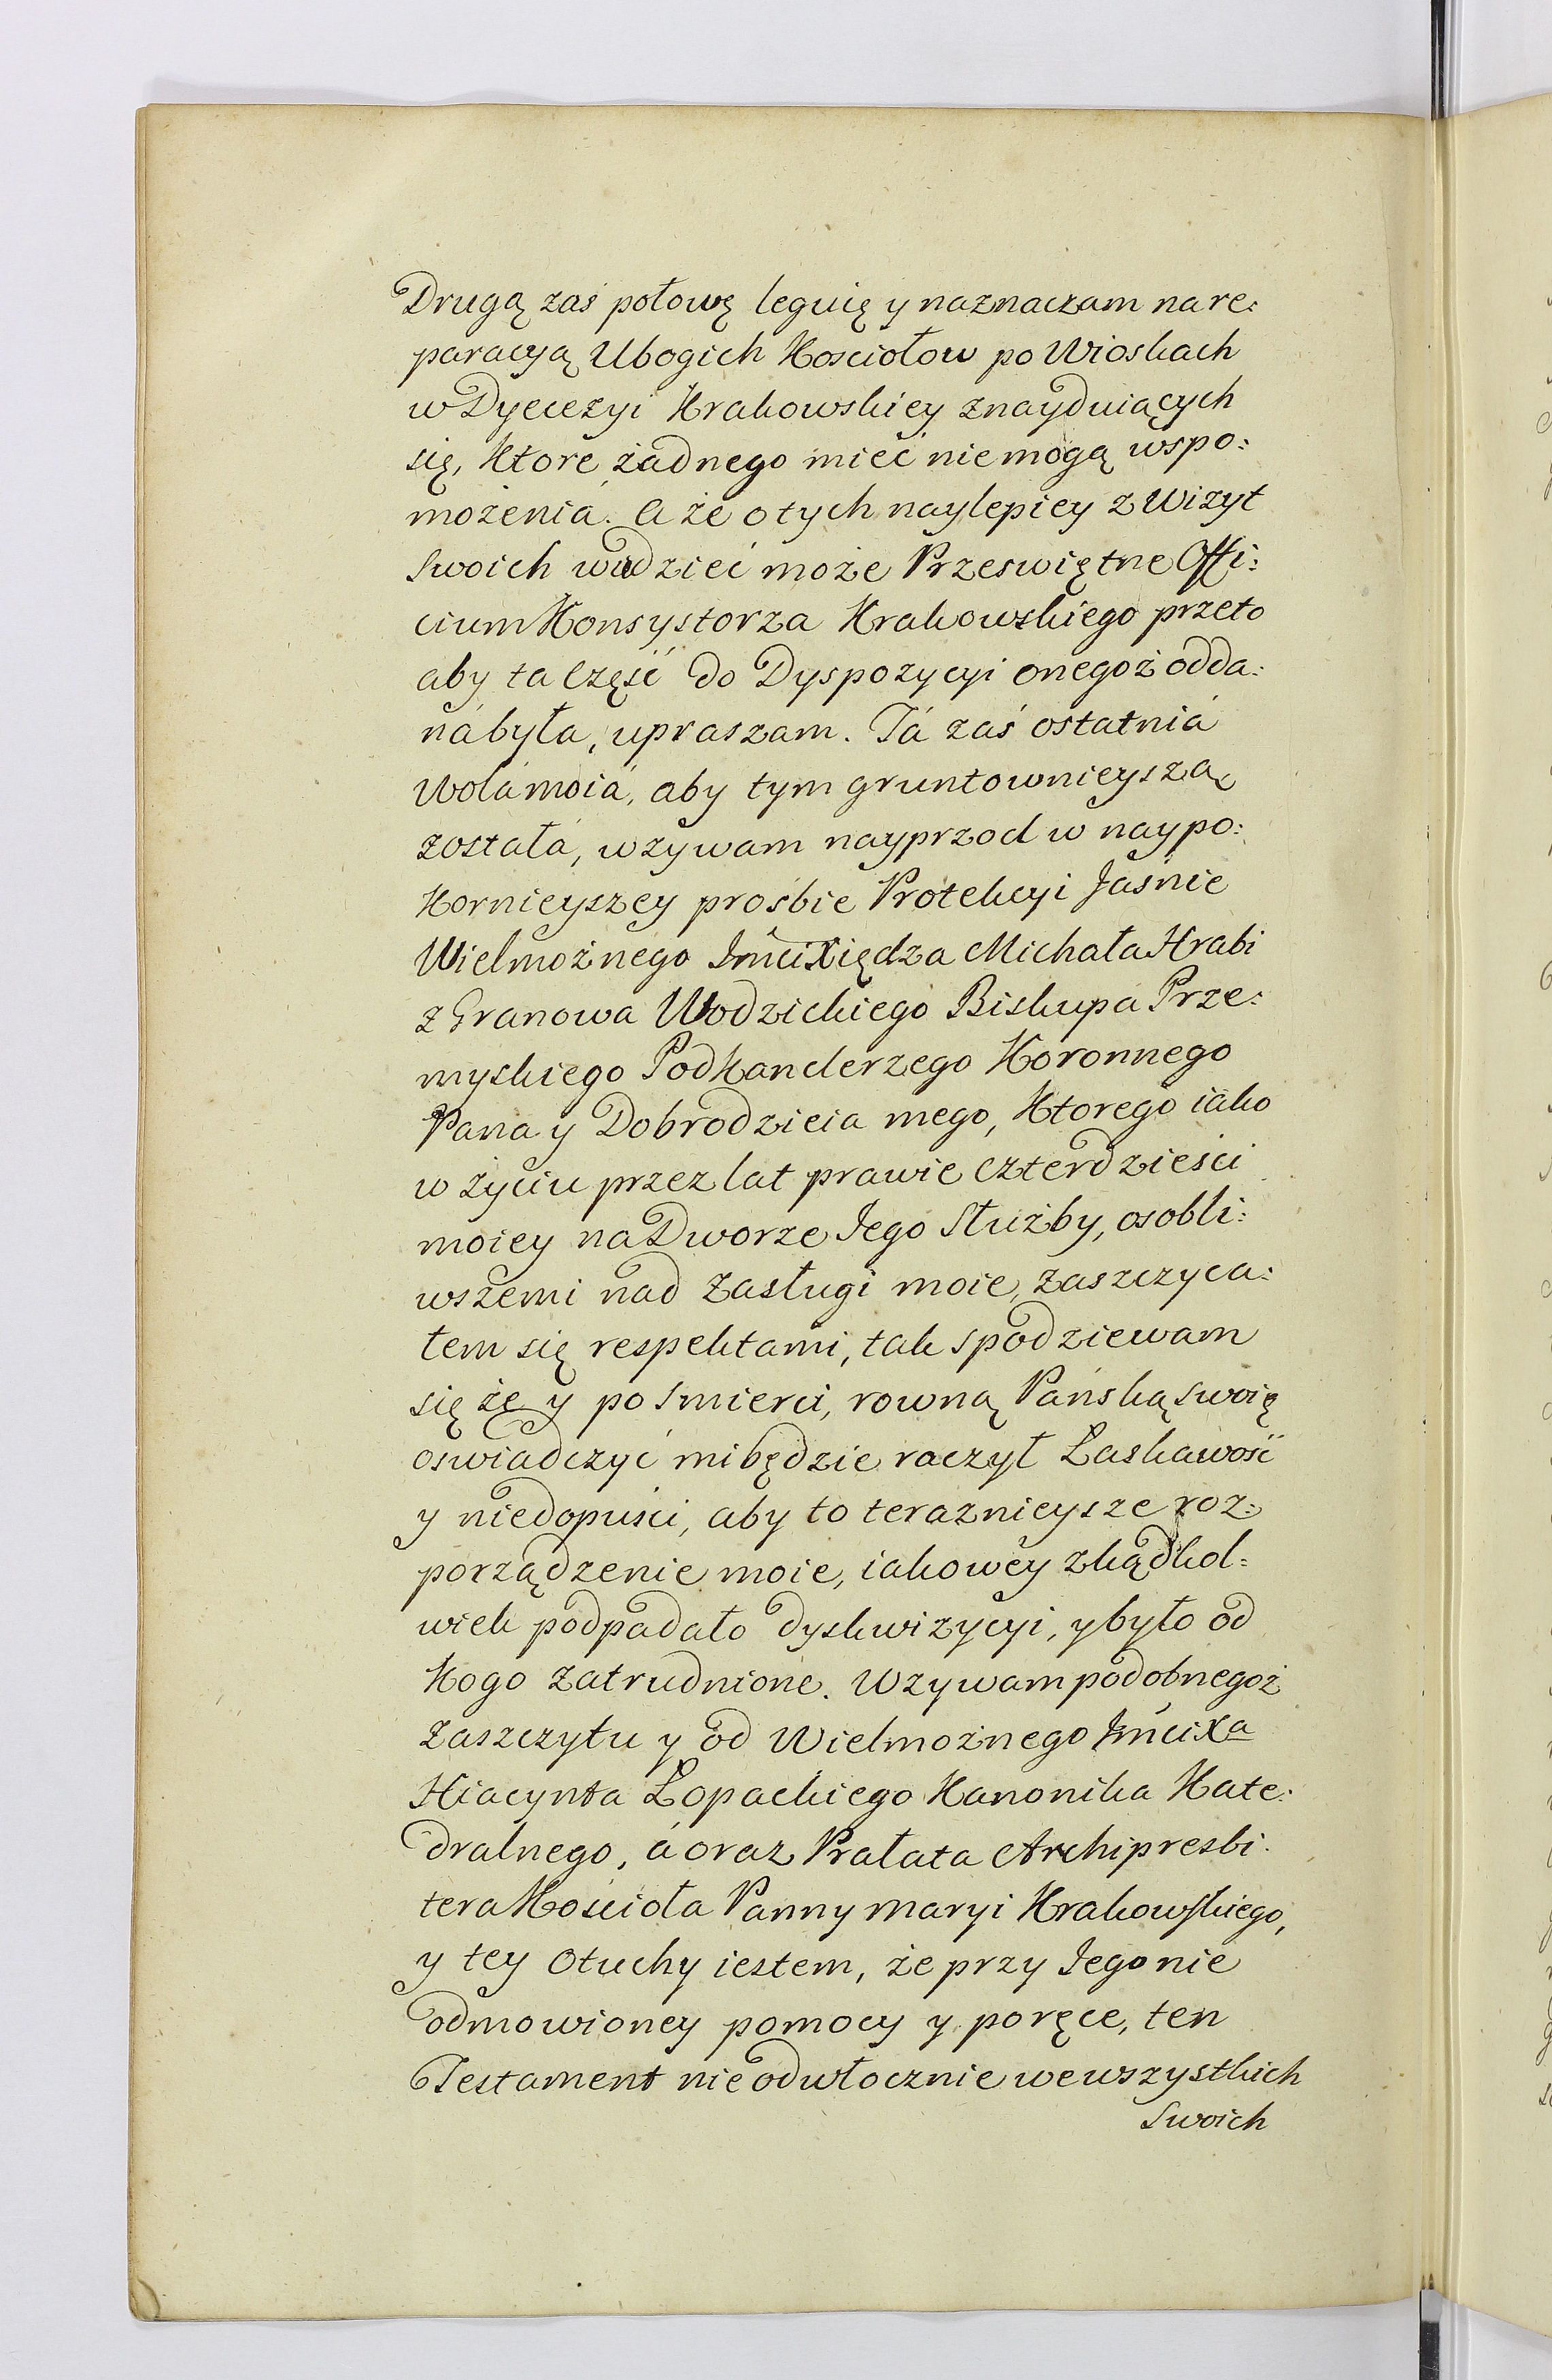 Drugą zaś połowę leguię y naznaczam na re:
paracyą Ubogich Kosciołow po Wioskach
w Dyecezyi Krakowskiey znayduiących
się, Ktore żadnego mieć nie mogą wspo:
możenia. A że o tych naylepiey z Wizyt
swoich wiedzieć może Przeswiętne Offi:
cium Konsystorza Krakowskiego przeto
aby ta Część do Dyspozycyi onegoż odda:
ná była, upraszam. Tá zaś ostatniá
Wolá moiá, aby tym gruntownieyszą
zostałá, wzywam nayprzod w naypo:
Kornieyszey prośbie Protekcyi Jaśnie
Wielmożnego Jmci Xiędza Michała Hrabi
z Granowa Wodzickiego Biskupa Prze:
myskiego PodKanclerzego Koronnego
Pana y Dobrodzieia mego, Ktorego iáko
w życiu przez lat prawie Czterdzieści
moiey na Dworze Jego Służby, osobli:
wszemi nad Zasługi moie, zaszczyca:
łem się respektami, tak spodziewam
się że y po Smierci, rowną Pańską swoię
oswiadczyć mi będzie raczył Łaskawość
y niedopuści, aby to teraznieysze roz:
porządzenie moie, iakowey zkądkol:
wiek podpadało dyskwizycyi, y było od
Kogo zatrudnione. Wzywam podobnegoż
Zaszczytu y od Wielmożnego Jmci Xa
Hiacynta Łopackiego Kanonika Kate:
dralnego, á oraz Prałata Archipresbi:
tera Kościoła Panny Maryi Krakowskiego,
y tey Otuchy iestem, że przy Jego nie
odmowioney pomocy y poręce, ten
Testament nieodwłocznie we wszystkich
Swoich